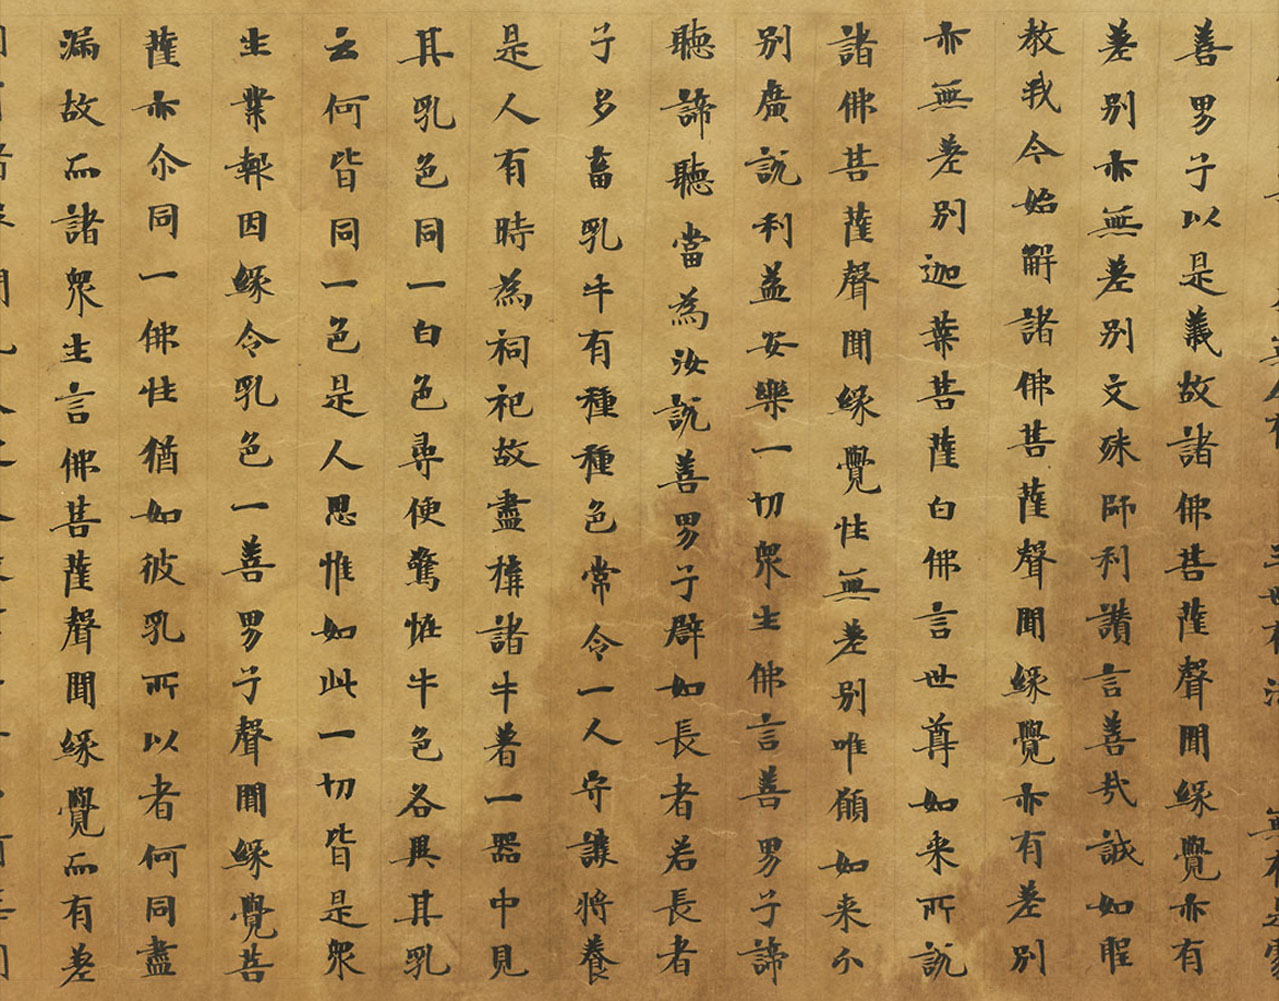 善男子以是義故諸佛菩薩聲聞緣覺亦有
差別亦無差別文殊師利讚言善哉誠如聖
教我今始解諸佛菩薩聲聞緣覺亦有差別
亦無差別迦葉菩薩白佛言世尊如来所說
諸佛菩薩聲聞緣覺性無差別唯願如来分
別廣說利益安樂一切眾生佛言善男子諦
聽諦聽當為汝說善男子辟如長者若長者
子多畜乳牛有種種色常令一人守護將養
是人有時為祠祀故盡構諸牛著一器中見
其乳色同一白色尋便驚恠牛色各異其乳
云何皆同一色是人思惟如此一切皆是眾
生業報因緣令乳色一善男子聲聞緣覺菩
薩亦尒同一佛性猶如彼乳所以者何同盡
漏故而諸眾生言佛菩薩聲聞緣覺而有差